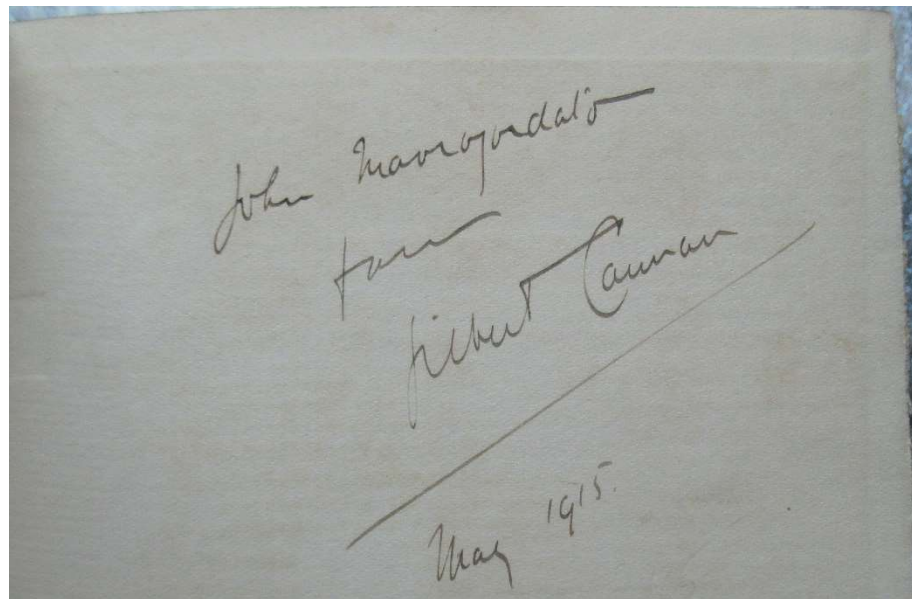 John Mavrogordato
from
Gilbert Cannan
May 1915.